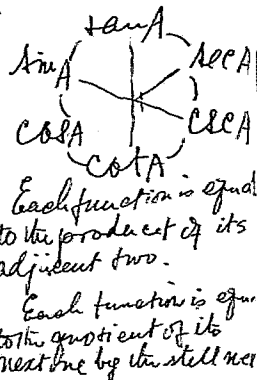 tan A
sin A sec A
cos A csc A
cot A
Each function is equal
to the product of its
adjacent two.
Each function is equ
to the quotient of its
next one by the still nex